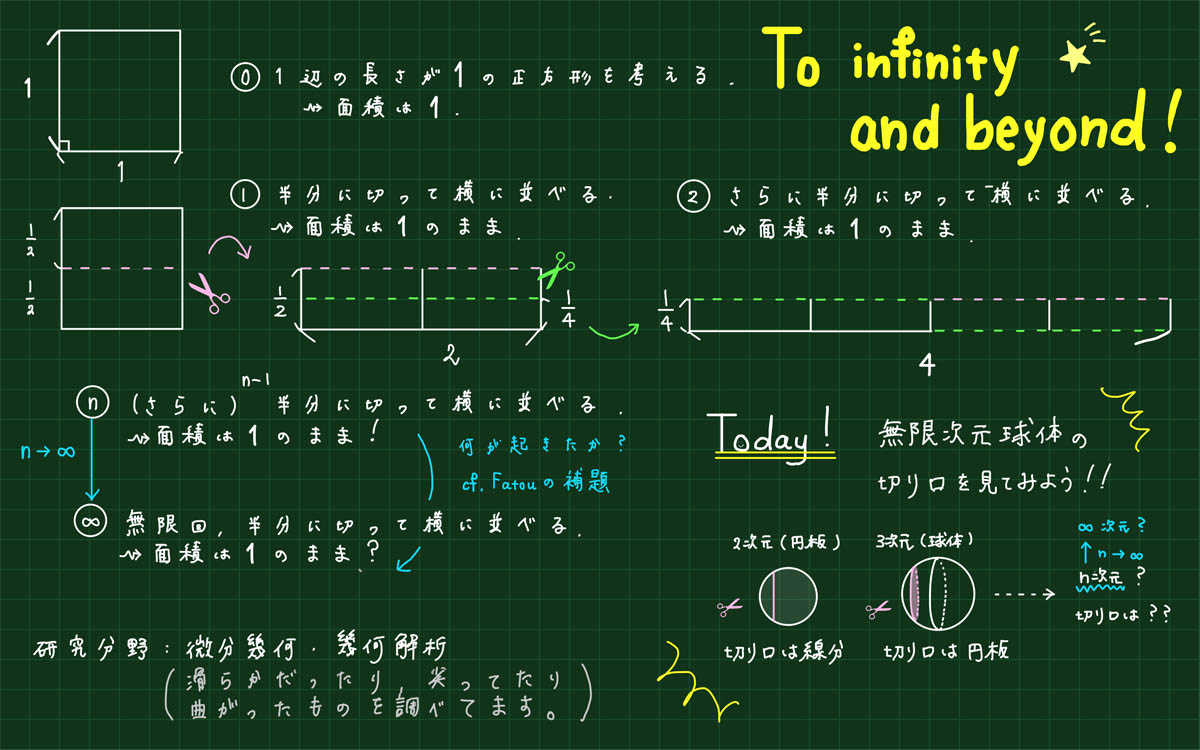 To infinity
and beyond!
1
1
⓪ 1辺の長さが1の正方形を考える.
⇝ 面積は1.
1/2
1/2
① 半分に切って横に並べる.
⇝ 面積は1のまま.
1/2
1/4
2
② さらに半分に切って横に並べる.
⇝ 面積は1のまま.
1/4
4
ⓝ (さらに)^{n-1} 半分に切って横に並べる.
⇝ 面積は1のまま!
n→∞
何が起きたか?
cf. Fatouの補題
∞ 無限回, 半分に切って横に並べる.
⇝ 面積は1のまま.?
研究分野: 微分幾何・幾何解析
(滑らかだったり, 尖ってたり
曲がったものを調べてます。)
Today!
無限次元球体の
切り口を見てみよう!!
2次元(円板)
切り口は線分
3次元(球体)
切り口は円板
∞次元?
↑n→∞
n次元?
切り口は??